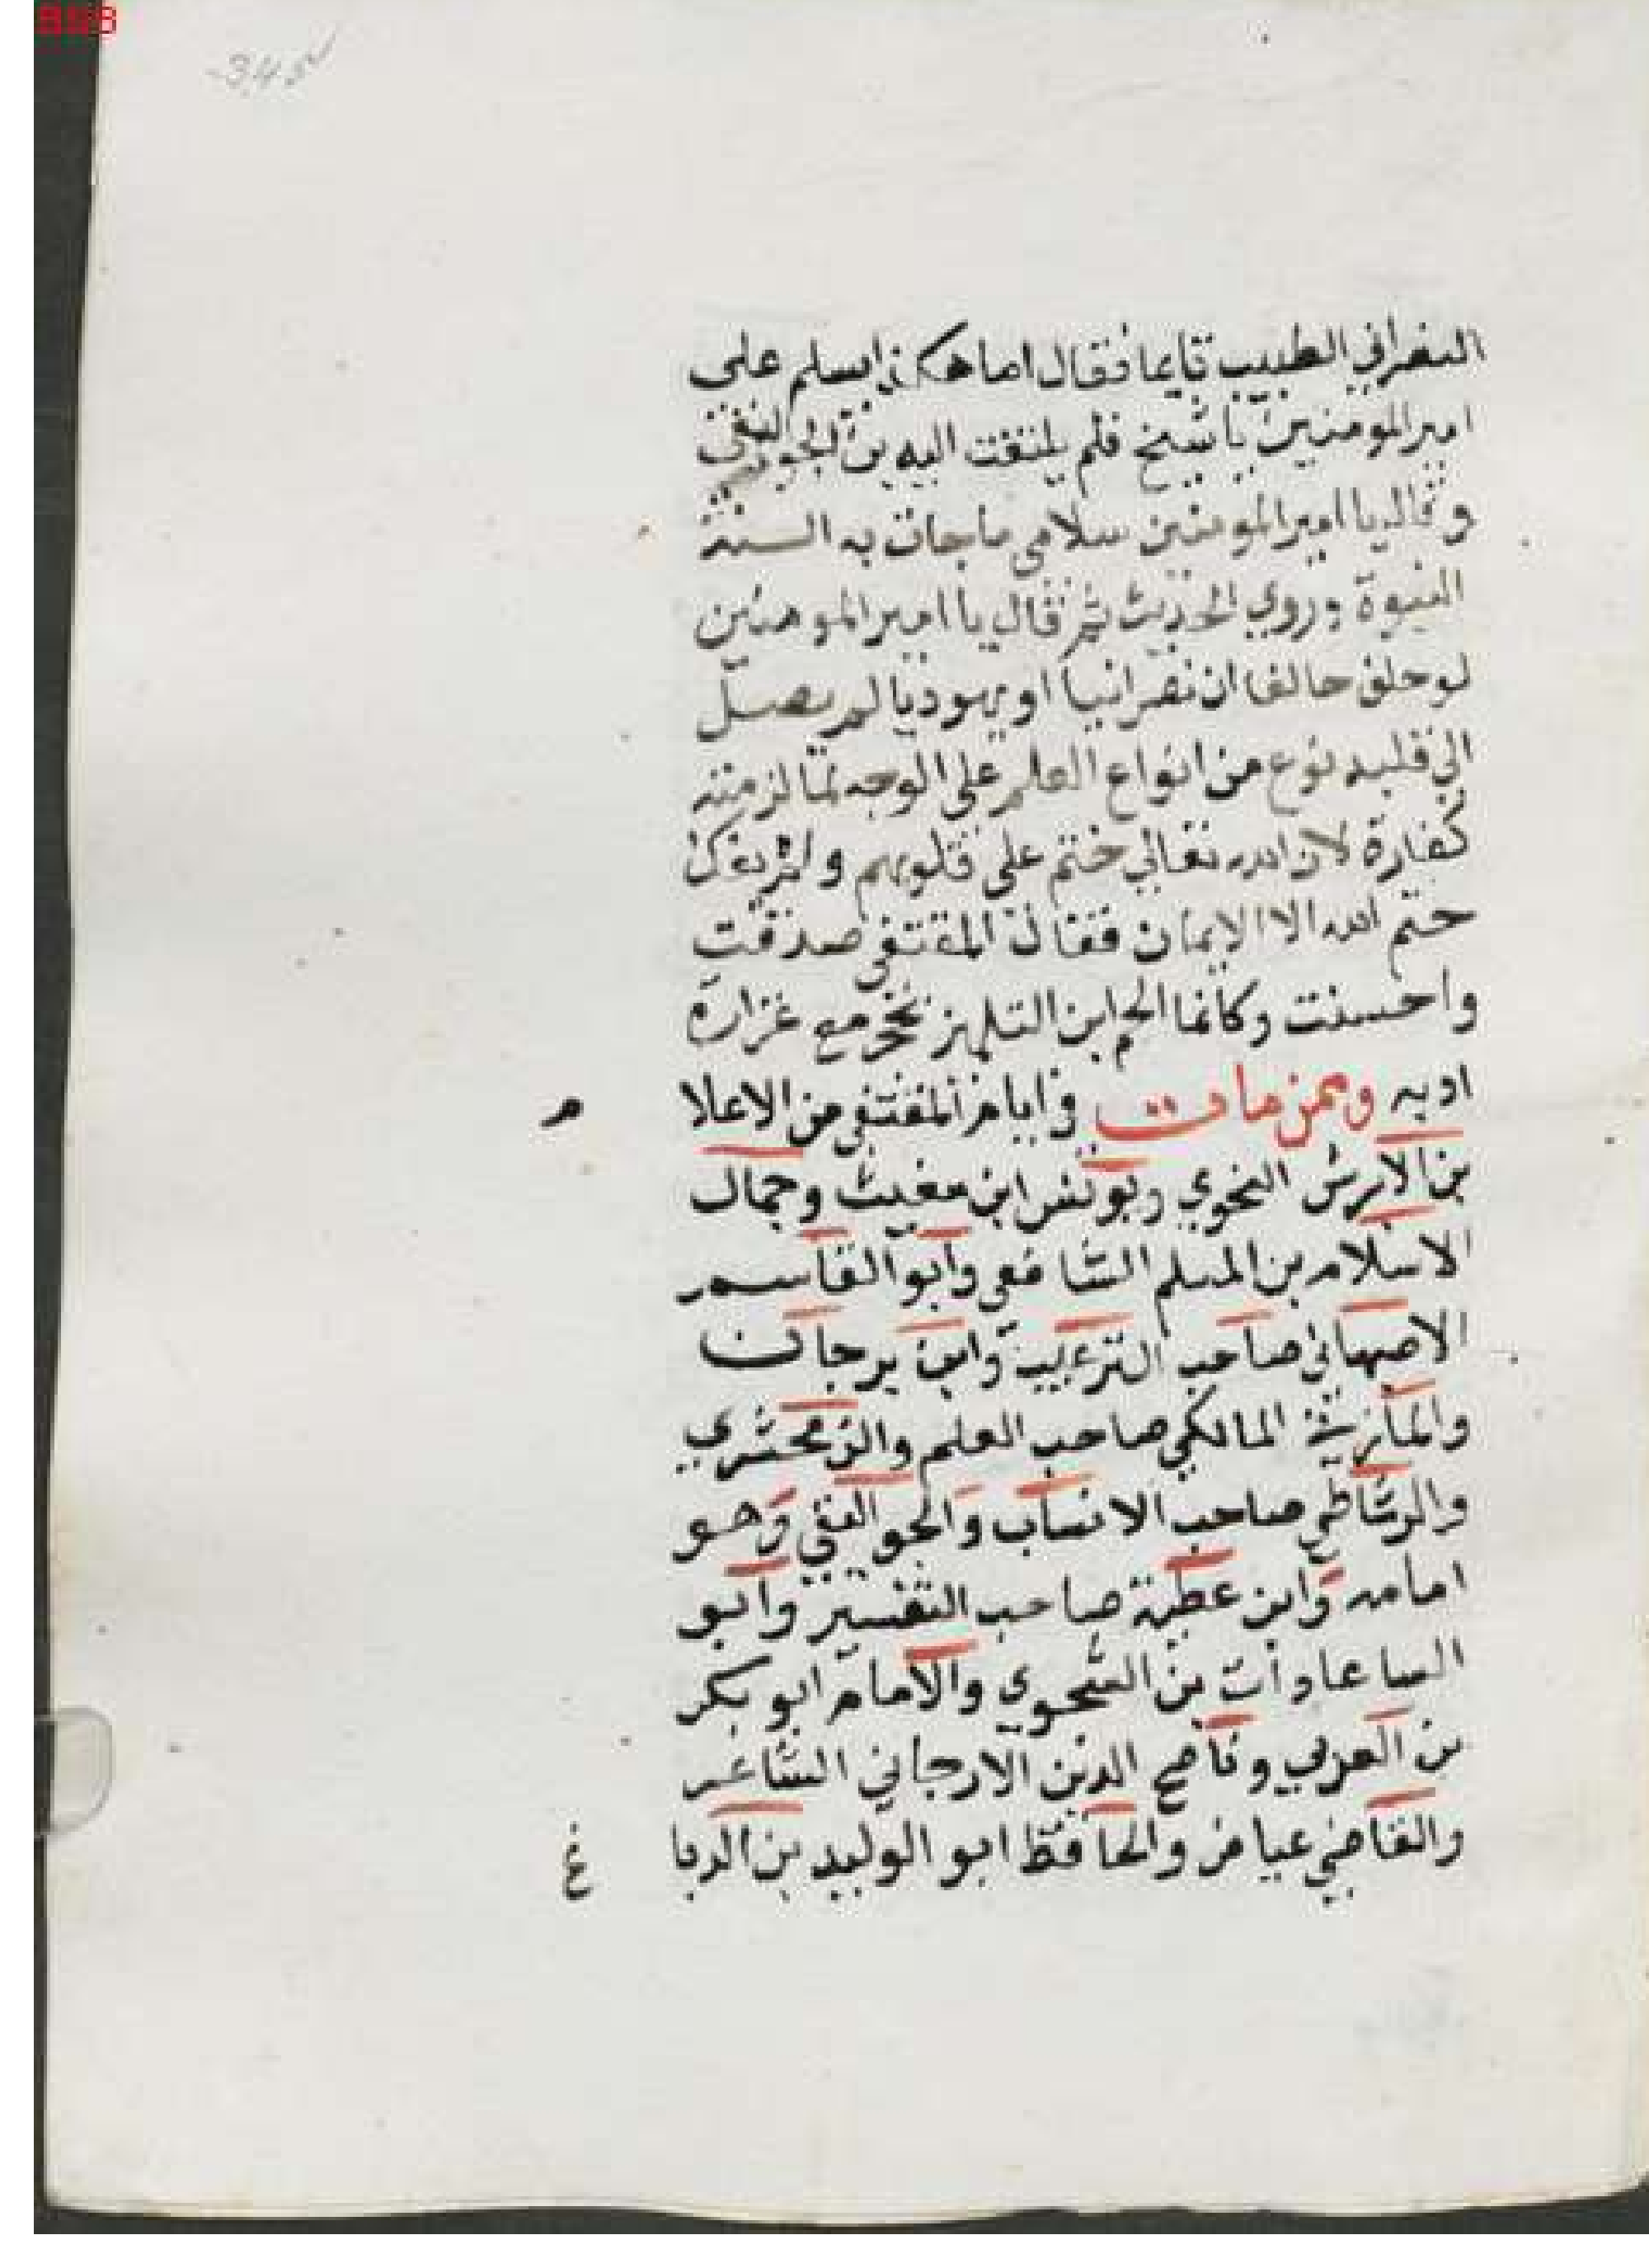 345
النصراني الطبيب قايما فقال اما هكذا يسلم على
امير المومنين يا شيخ فلم يلتفت اليه بن الجواليقي
وقال يا امير المومنين سلامي ما جات به السنة
النبوة وروي الحديث ثم قال يا امير المومنين
لو حلف حالف ان نصرانيا او يهوديا لم يصل
الي قلبه نوع من انواع العلم على الوجه لما لزمته
كفارة لان الله تعالي ختم علي قلوبهم ولم يفك
ختم الله الا الايمان فقال المقتفي صدقت
واحسنت وكانما الجم ابن التلميذ نحجر مع غزارة
ادبه وممن مات في ايام المقتفي من الاعلا م
بن الابرش النحوي ويونس ابن مغيث وجمال
الاسلام بن المسلم الشافعي وابو القاسم
الاصبهاني صاحب الترغيب وابن برجان
والمازني المالكي صاحب العلم والزمخشري
والرشاطي صاحب الانساب والجواليقي وهو
امامه وابن عطية صاحب التفسير وابو
الساعادات بن الشجوي والامام ابو بكر
بن العربي وناصح الدين الارجاني الشاعر
والقاضي عياض والحافظ ابو الوليد بن الدبا غ